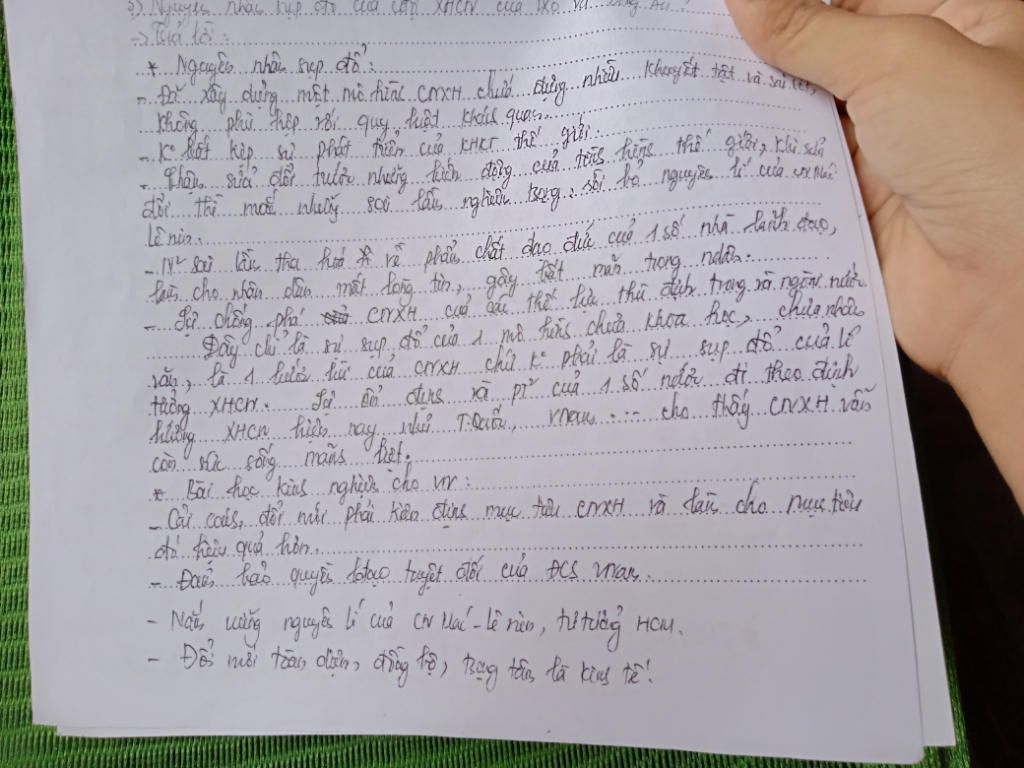 3) Nguyên nhân sụp đổ của CĐXHCN của LXô và Đông Âu?
-> Trả lời:
* Nguyên nhân sụp đổ:
- Đã xây dựng một mô hình CNXH chứa đựng nhiều khuyết tật và sai
không phù hợp với quy luật khách quan.
- K° bắt kịp sự phát triển của KHKT thế giới.
- Chậm sửa đổi trước những biến động của tình hình thế giới, khi sửa
đổi thì mắc những sai lầm nghiêm trọng: rời bỏ nguyên lí của CN Mác
Lê nin.
- N² sai lầm tha hoá về phẩm chất đạo đức của 1 số nhà lãnh đạo,
làm cho nhân dân mất lòng tin, gây bất mãn trong ndân.
- Sự chống phá CNXH của các thế lực thù địch trong và ngoài nước
Đây chỉ là sự sụp đổ của 1 mô hình chưa khoa học, chưa nhân
văn, là 1 bước lùi của CNXH chứ K° phải là sự sụp đổ của lí
tưởng XHCN. Sự ổn định và PT² của 1 số nước đi theo định
hướng XHCN hiện nay như T.Quốc, Vnam.... cho thấy CNXH vẫn
còn sức sống mãnh liệt.
* Bài học kinh nghiệm cho VN:
- Cải cách, đổi mới phải kiên định mục tiêu CNXH và làm cho mục tiêu
đó hiệu quả hơn.
- Đảm bảo quyền lđạo tuyệt đối của ĐCS Vnam.
- Nắm vững nguyên lí của CN Mác-Lê nin, tư tưởng HCM.
- Đổi mới toàn diện, đồng bộ, trọng tâm là kinh tế!